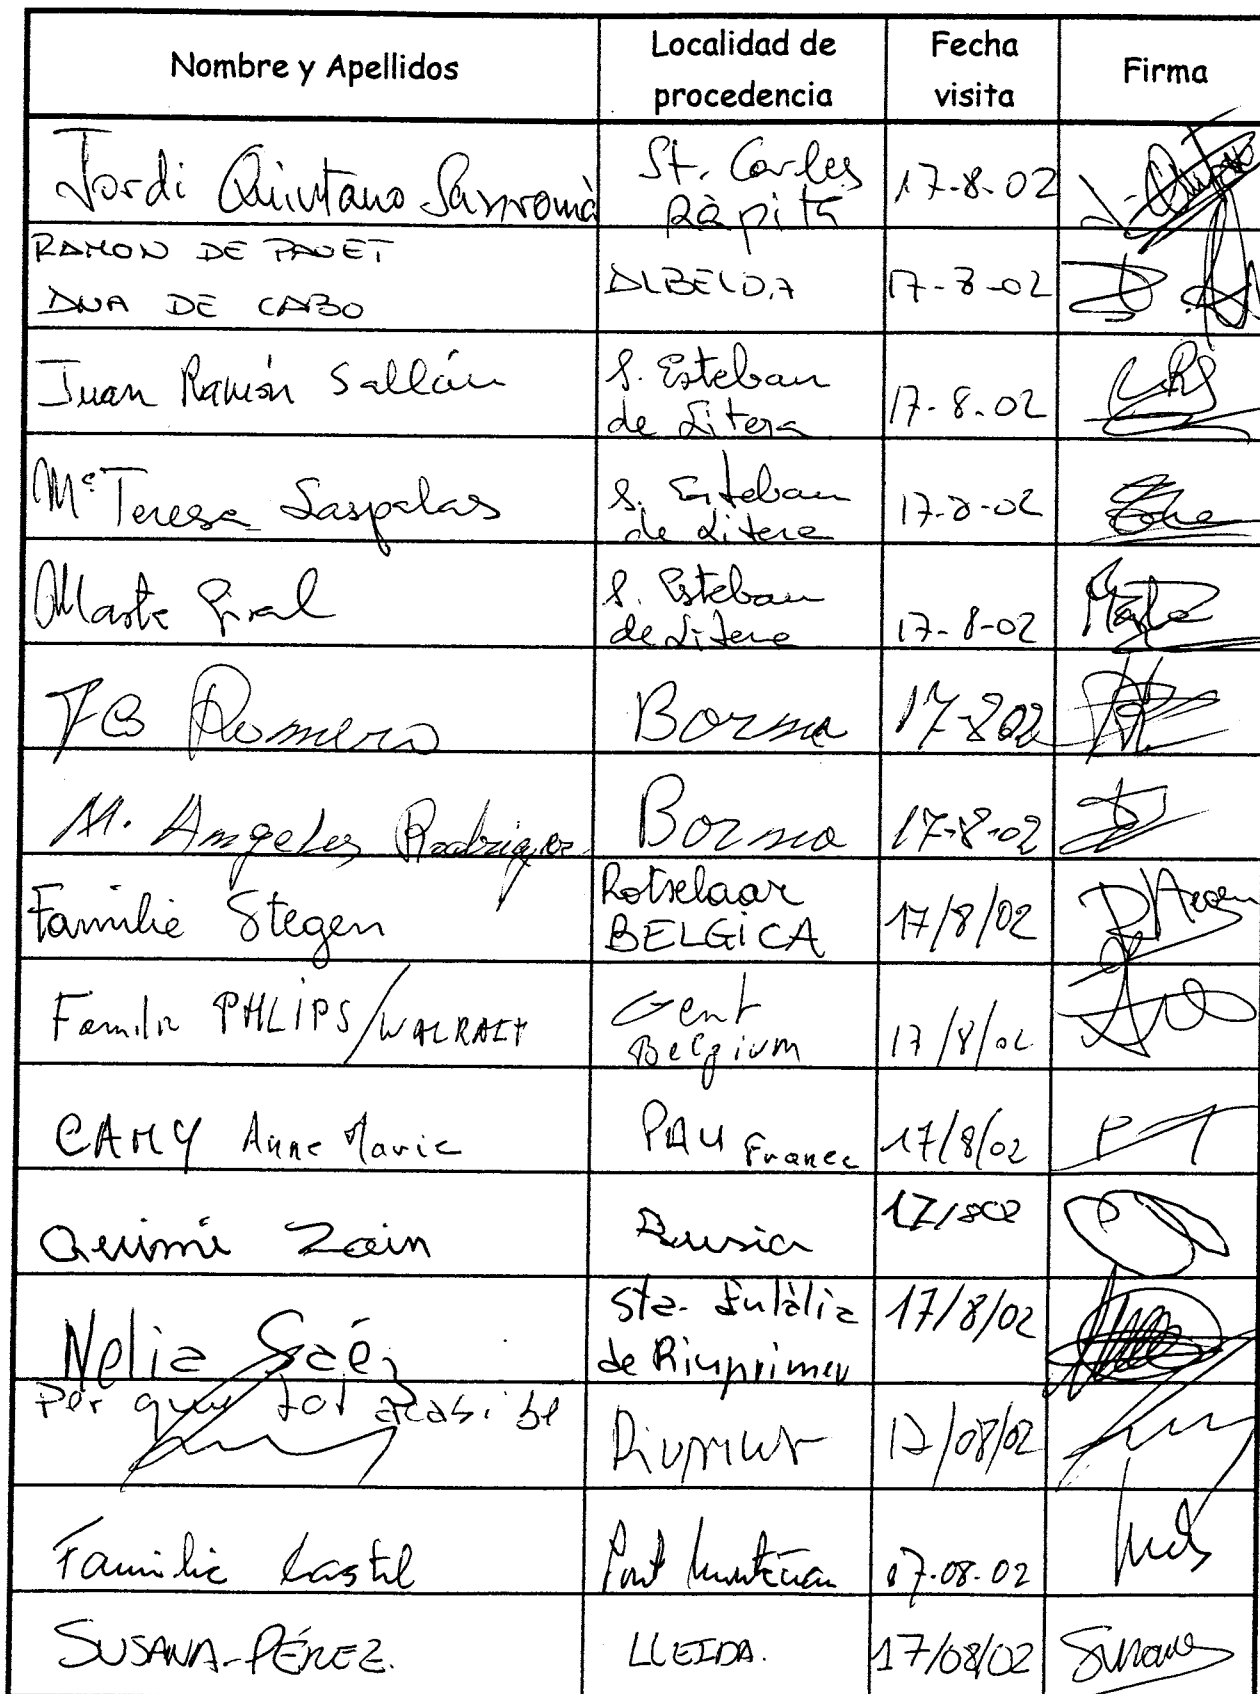 Nombre y Apellidos
Localidad de
procedencia
Fecha
visita
Firma
Jordi Quintana
St. Carles
Ràpita
17-8-02
RAMON DE PAUET
ANA DE CABO
ALBELDA
17-8-02
Juan Ramón Sallán
S. Esteban
de Litera
17-8-02
Mª Teresa Laspalas
S. Esteban
de Litera
17-8-02
Marta Giral
S. Esteban
de Litera
17-8-02
Marta
Romero
17-8-02
M. Angeles Rodriguez
17-8-02
Familie Stegen
Rotselaar
BELGICA
17/8/02
Stegen
Familie PHLIPS/WALRAET
Gent
Belgium
17/8/02
CAMY Anne Marie
PAU France
17/8/02
Quimi Zain
Rusia
17/802
Nelia Saéz
Sta. Eulàlia
de Riuprimer
17/8/02
Per que tot
17/08/02
Familia Castel
Pont
17-08-02
SUSANA-PÉREZ.
LLEIDA.
17/08/02
Susana